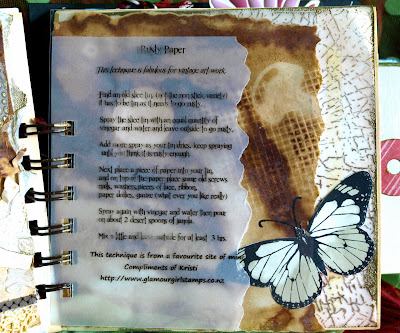 Rusty Paper
This technique is fabulous for vintage art work.
Find an old slice tin, (not the non stick, variety)
it has to be tin as it needs to go rusty.
Spray the slice tin with an equal quantity of
vinegar and water and leave outside to go rusty.
Add more spray as your tin dries, keep spraying
until you think it is rusty enough.
Next place a piece of paper into your tin,
and on top of the paper place some old screws
nails, washers, pieces of lace, ribbon,
paper doilies, gauze (what ever you like really)
Spray again with vinegar and water then pour
on about 2 desert spoons of
Mix a little and leave outside for at least 3 hrs.
This technique is from a favourite site of
Compliments of Kristi
http://www.glamourgirlstamps.co.nz